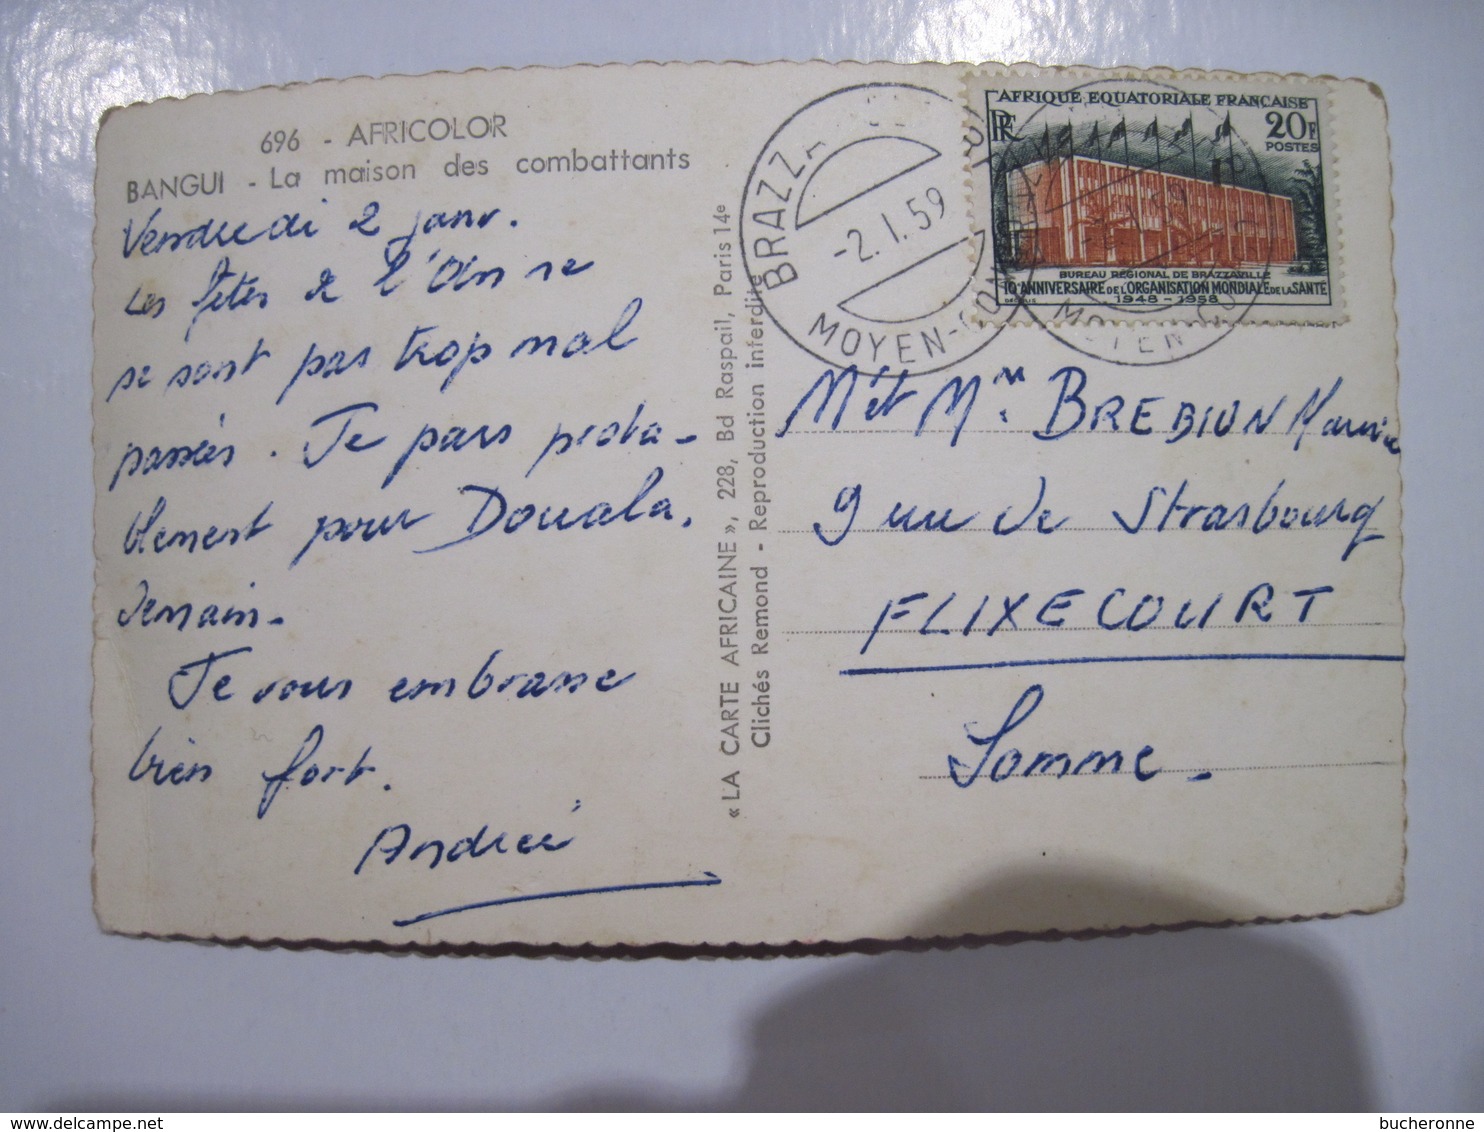 696 - AFRICOLOR
BANGUI - La maison des combattants
Vendredi 2 janv.
Les fêtes de l'An ne
se sont pas trop mal
passées. Je pars proba-
blement pour Douala
demain.
Je vous embrasse
bien fort.
Andrée
« LA CARTE AFRICAINE », 228, Bd Raspail, Paris 14e
Clichés Remond - Reproduction interdite
BRAZZA
-2.1.59
MOYEN-CON
AFRIQUE EQUATORIALE FRANÇAISE
RF
20F
POSTES
BUREAU RÉGIONAL DE BRAZZAVILLE
10e ANNIVERSAIRE DE L'ORGANISATION MONDIALE DE LA SANTÉ
1948 - 1958
Mr et Mme BREBION Maurice
9 rue de Strasbourg
FLIXECOURT
Somme.
bucheronne